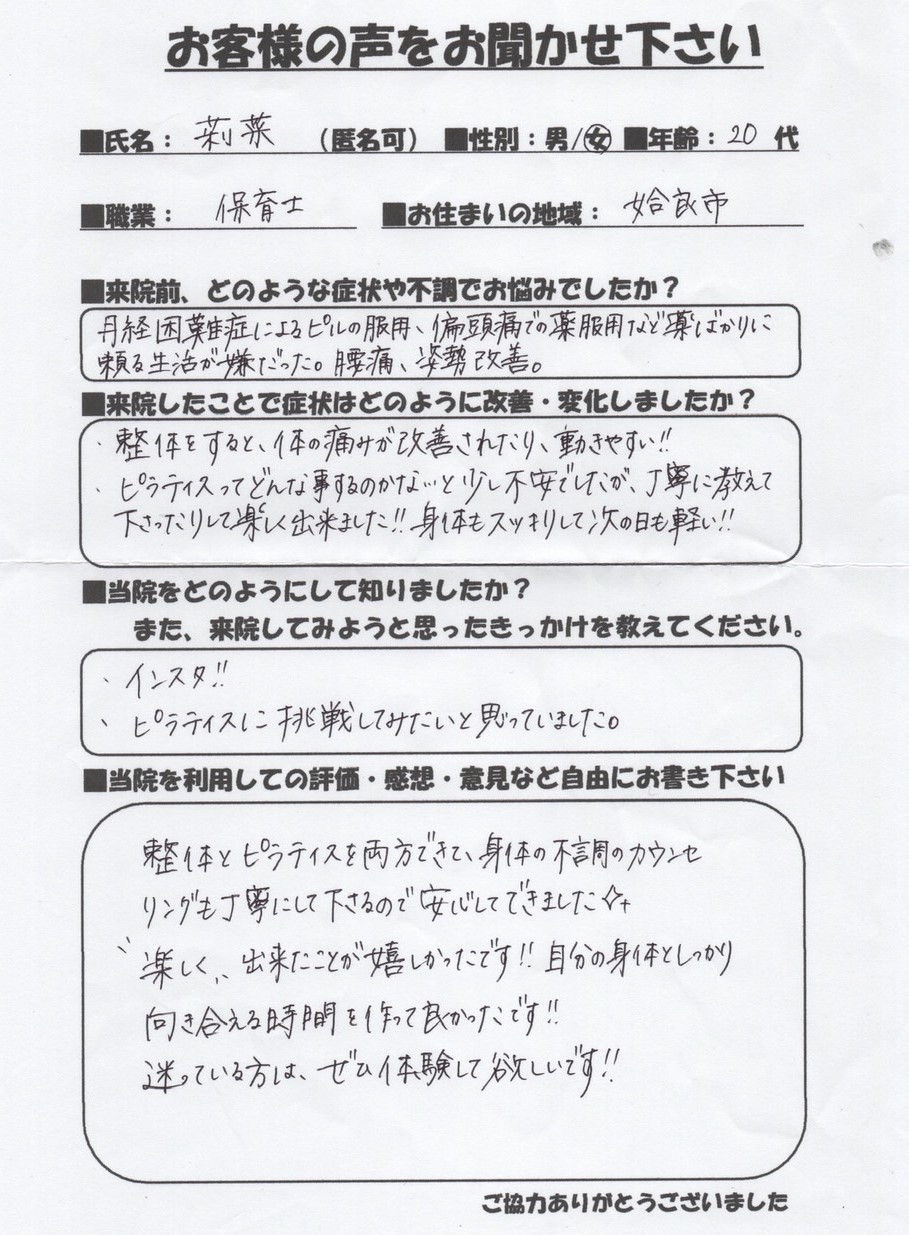 お客様の声をお聞かせ下さい
■氏名：莉菜（匿名可）■性別：男/女 ■年齢：20代
■職業：保育士 ■お住まいの地域：姶良市
■来院前、どのような症状や不調でお悩みでしたか？
月経困難症によるピルの服用、偏頭痛での薬服用など薬ばかりに
頼る生活が嫌だった。腰痛、姿勢改善。
■来院したことで症状はどのように改善・変化しましたか？
・整体をすると、体の痛みが改善されたり、動きやすい!!
・ピラティスってどんな事するのかな…と少し不安でしたが、丁寧に教えて
下さったりして楽しく出来ました!!身体もスッキリして次の日も軽い!!
■当院をどのようにして知りましたか？
また、来院してみようと思ったきっかけを教えてください。
・インスタ!!
・ピラティスに挑戦してみたいと思っていました。
■当院を利用しての評価・感想・意見など自由にお書き下さい
整体とピラティスを両方できて、身体の不調のカウンセ
リングも丁寧にして下さるので安心してできました☆+
〝楽しく〟出来たことが嬉しかったです!!自分の身体としっかり
向き合える時間を作って良かったです!!
迷っている方は、ぜひ体験して欲しいです!!
ご協力ありがとうございました